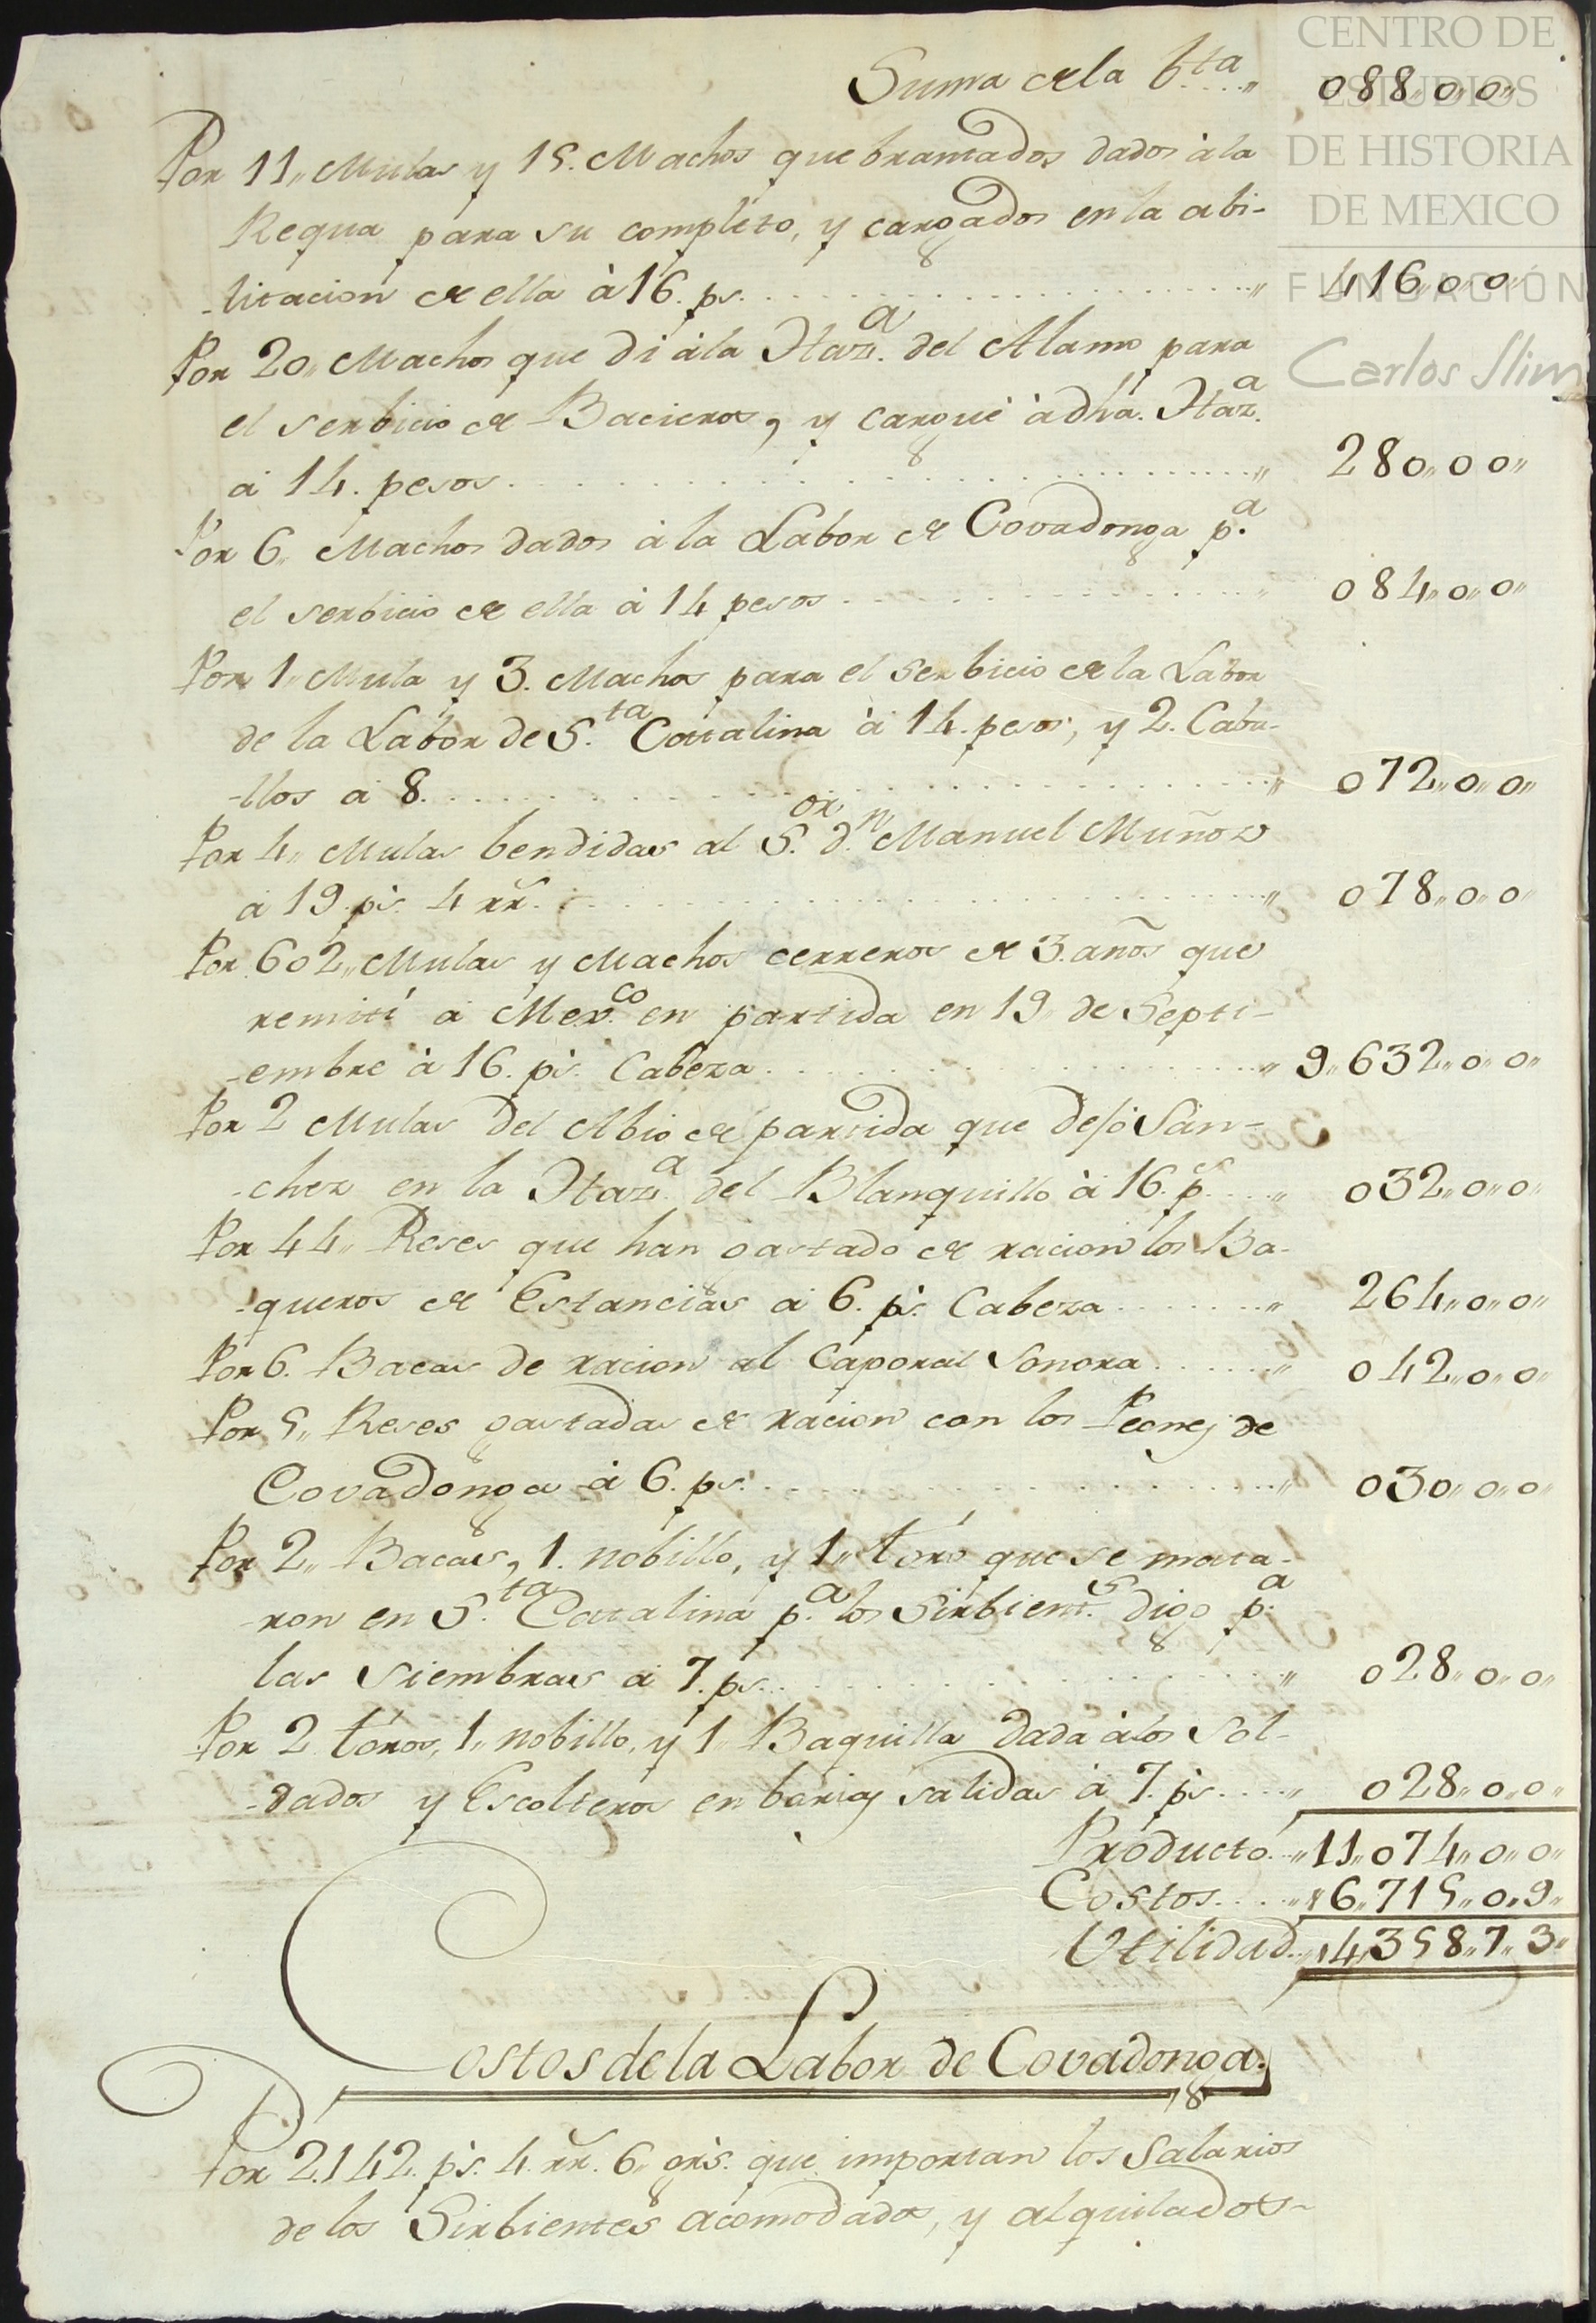 CENTRO DE
ESTUDIOS
DE HISTORIA
DE MEXICO
FUNDACIÓN
Carlos Slim
Suma de la b.ta 088,,0,,0,,
Por 11,, Mulas y 15. Machos quebrantados dados à la
Requa para su completo, y cargados en la abi-
-litacion de ella à 16. ps. 416,,0,,0,,
Por 20,, Machos que di à la Haz.a del Alamo para
el serbicio de Bacieros, y carguè à dha. Haz.a
à 14. pesos 280,,0 0,,
Por 6,, Machos dados à la Labor de Covadonga p.a
el serbicio de ella à 14 pesos 084,,0,,0,,
Por 1,, Mula y 3. Machos para el serbicio de la Labor
de la Labor de S.ta Catalina à 14. pesos, y 2. Caba-
-llos à 8. 072,,0,,0,,
Por 4,, Mulas bendidas al S.or d.n Manuel Muñoz
à 19 ps. 4 rr. 078,,0,,0
Por 602,, Mulas y Machos cerreros de 3. años que
remiti à Mex.co en partida en 19 de Septi-
-embre à 16. ps. Cabeza 9,,632,,0,,0,,
Por 2 Mulas del Abio de partida que dejò San-
-chez en la Haz.a del Blanquillo à 16. p.s 032,,0,,0,,
Por 44,, Reses que han gastado de racion los Ba-
-queros de Estancias à 6. ps. Cabeza 264,,0,,0,,
Por 6. Bacas de racion al Caporal Sonora 042,,0,,0,,
Por 5,, Reses gastadas de racion con los Peones de
Covadonga à 6. ps. 030,,0,,0,,
Por 2,, Bacas, 1. nobillo, y 1,, toro que se mata-
-ron en S.ta Catalina p.a los Sirbient.s digo p.a
las siembras à 7. ps. 028,,0,,0,,
Por 2 toros, 1,, nobillo, y 1,, Baquilla dada à los Sol-
-dados y Escolteros en barias salidas à 7. ps. 028,,0,,0,,
Producto 11,,074,,0,,0,,
Costos 6,,715,,0,,9,,
Utilidad 4,358,,7,,3,,
Costos de la Labor de Covadonga.
Por 2.142. ps. 4. rr. 6,, grs. que importan los Salarios
de los Sirbientes acomodados, y alquilados-